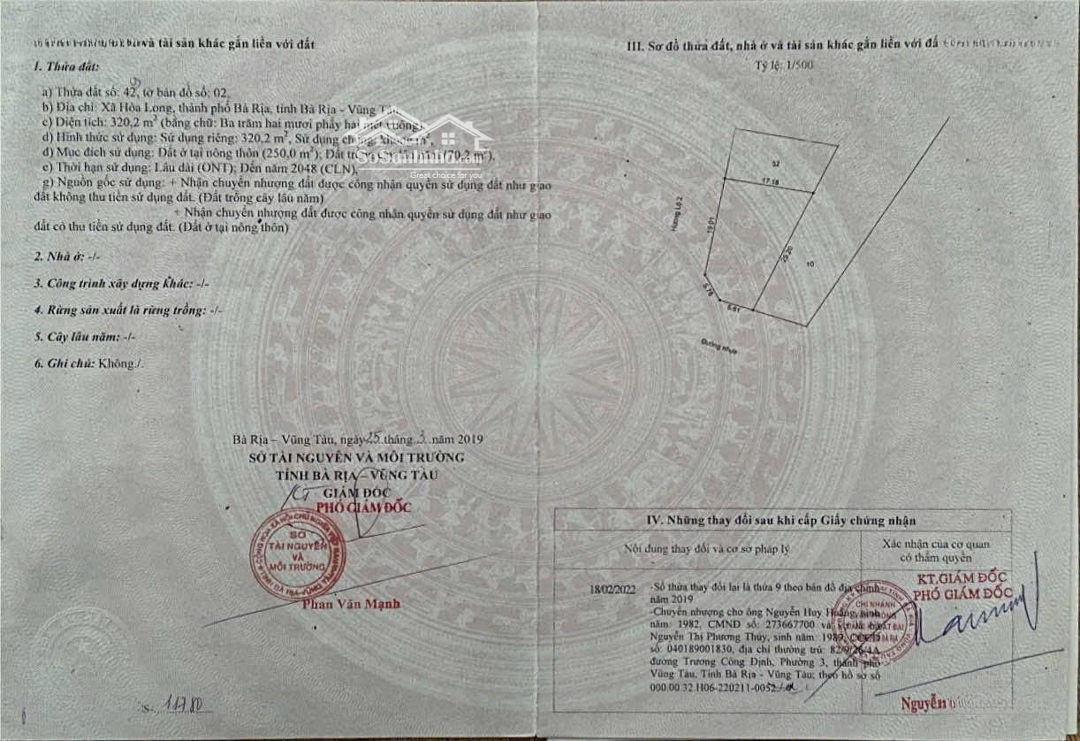 và tài sản khác gắn liền với đất
1. Thửa đất:
a) Thửa đất số: 42, tờ bản đồ số: 02.
9
b) Địa chỉ: Xã Hòa Long, thành phố Bà Rịa, tỉnh Bà Rịa - Vũng
c) Diện tích: 320,2 m² (bằng chữ: Ba trăm hai mươi phẩy hai mét vuông),
d) Hình thức sử dụng: Sử dụng riêng: 320,2 m², Sử dụng chung:
đ) Mục đích sử dụng: Đất ở tại nông thôn (250,0 m²); Đất (70,2 m²).
e) Thời hạn sử dụng: Lâu dài (ONT); Đến năm 2048 (CLN),
g) Nguồn gốc sử dụng: + Nhận chuyển nhượng đất được công nhận quyền sử dụng đất như giao
đất không thu tiền sử dụng đất. (Đất trồng cây lâu năm)
+ Nhận chuyển nhượng đất được công nhận quyền sử dụng đất như giao
đất có thu tiền sử dụng đất. (Đất ở tại nông thôn)
2. Nhà ở: -/-
3. Công trình xây dựng khác: -/-
4. Rừng sản xuất là rừng trồng: -/-
5. Cây lâu năm: -/-
6. Ghi chú: Không./.
SoSanhNha.com
Great choice for you
Bà Rịa - Vũng Tàu, ngày 25 tháng 3 năm 2019
SỞ TÀI NGUYÊN VÀ MÔI TRƯỜNG
TỈNH BÀ RỊA - VŨNG TÀU
KT GIÁM ĐỐC
PHÓ GIÁM ĐỐC
SỞ
TÀI NGUYÊN
VÀ
MÔI TRƯỜNG
Phan Văn Mạnh
S- 11780
III. Sơ đồ thửa đất, nhà ở và tài sản khác gắn liền với đất
Tỷ lệ: 1/500
52
17.18
Hương Lộ 2
19.01
29.20
10
5.78
6.61
Đường nhựa
IV. Những thay đổi sau khi cấp Giấy chứng nhận
Nội dung thay đổi và cơ sở pháp lý
Xác nhận của cơ quan
có thẩm quyền
18/02/2022
-Số thửa thay đổi lại là thửa 9 theo bản đồ địa chính
năm 2019
-Chuyển nhượng cho ông Nguyễn Huy Hoàng, sinh
năm: 1982, CMND số: 273667700 và
Nguyễn Thị Phương Thúy, sinh năm: 1989,
số: 040189001830, địa chỉ thường trú: 82/9/26/4A
đường Trương Công Định, Phường 3, thành phố
Vũng Tàu, Tỉnh Bà Rịa - Vũng Tàu; theo hồ sơ số
000.00.32.H06-220211-0052
KT.GIÁM ĐỐC
PHÓ GIÁM ĐỐC
CHI NHÁNH
Nguyễn